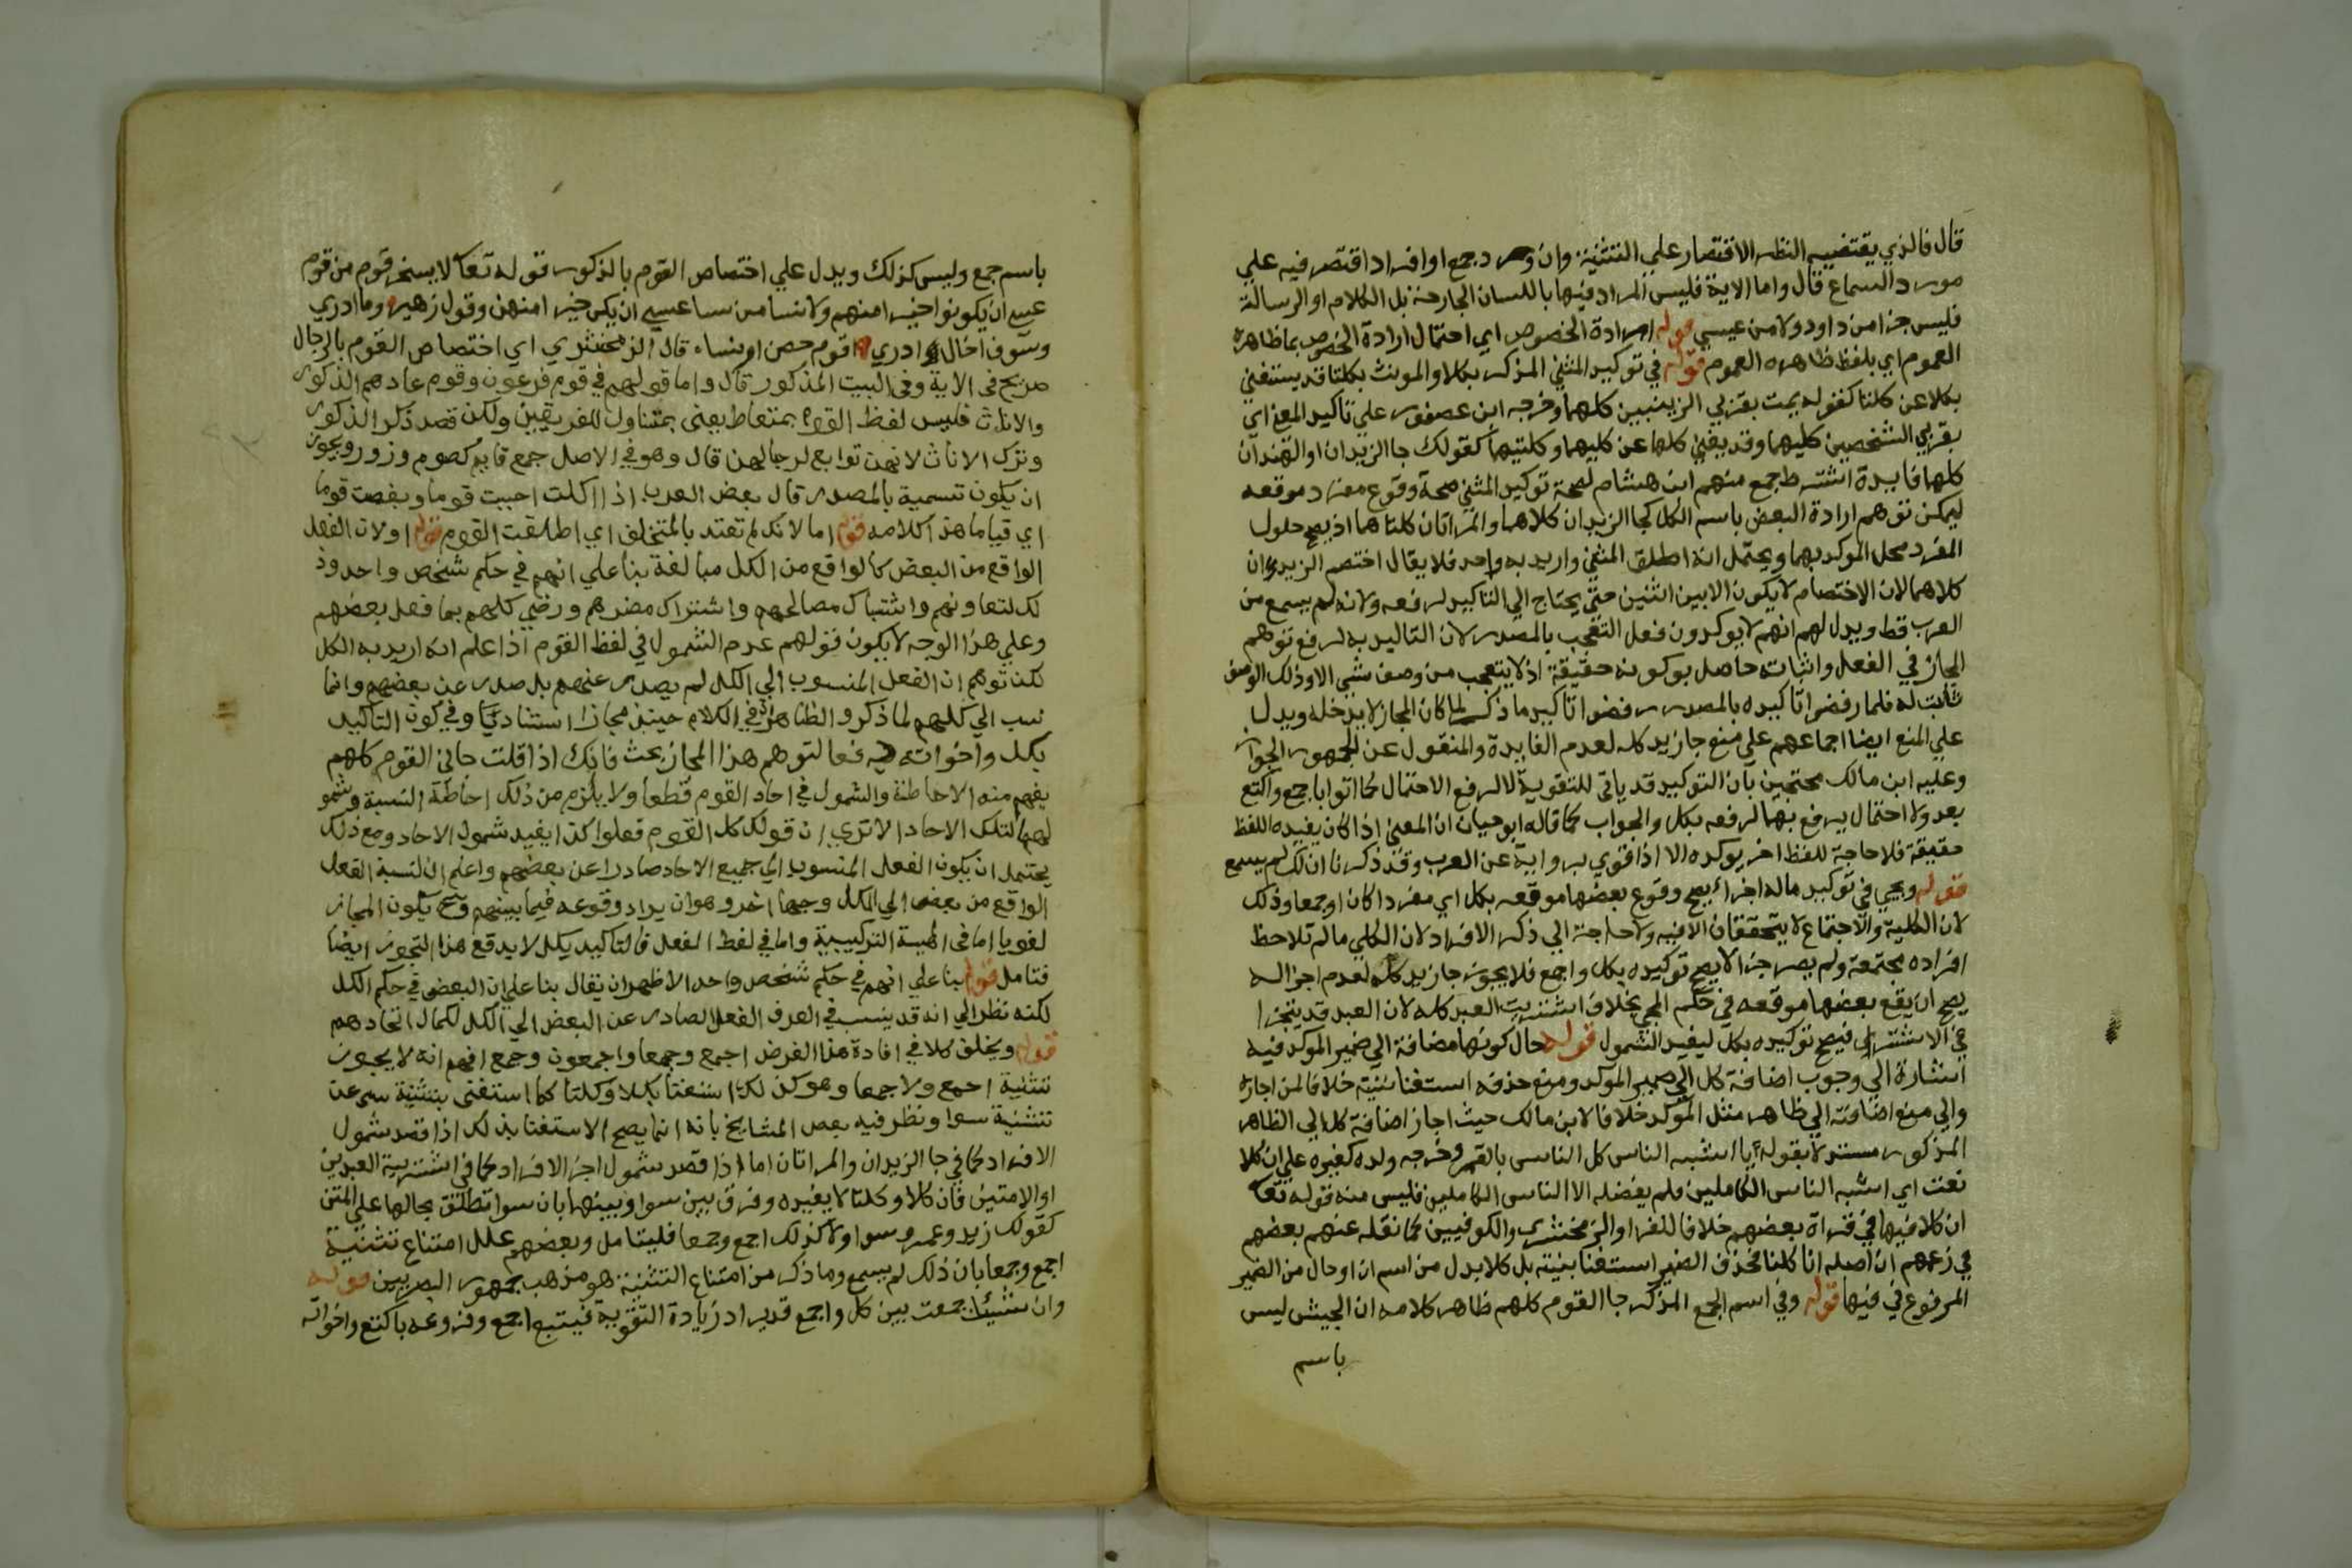 قال فالذي يقتضيه النظر الاقتصار علي التثنية وان ورد جمع او افراد اقتصر فيه علي
مورد السماع قال واما الاية فليس المراد فيها باللسان الجارحة بل الكلام او الرسالة
فليس جزا من داود ولا من عيسي قوله ارادة الخصوص اي احتمال ارادة الخصوص بما ظاهره
العموم اي بلفظ ظاهره العموم قوله في توكيد المثني المذكر بكلا والمونث بكلتا قد يستغني
بكلا عن كلتا كقوله يمت بقربي الزينبين كلهما وخرجه ابن عصفور علي تاكيد المعني اي
بقربي الشخصين كليهما وقد يغني كلها عن كليهما وكلتيهما كقولك جا الزيدان او الهندان
كلهما فايدة اشترط جمع منهم ابن هشام لصحة توكيد المثني صحة وقوع مفرد موقعه
ليمكن توهم ارادة البعض باسم الكل كجا الزيدان كلاهما والمراتان كلتاهما اذ يصح حلول
المفرد محل الموكد بهما ويحتمل انه اطلق المثني واريد به واحد فلا يقال اختصم الزيدان
كلاهما لان الاختصام لا يكون الا بين اثنين حتي يحتاج الي التاكيد لرفعه ولانه لم يسمع من
العرب قط ويدل لهم انهم لا يوكدون فعل التعجب بالمصدر لان التاكيد به لرفع توهم
المجاز في الفعل واثباته حاصل بوكونه حقيقة اذ لا يتعجب من وصف شي الا وذلك الوصف
ثابت له فلما رفضوا تاكيده بالمصدر رفضوا تاكيد ما ذكر لما كان المجاز لا يدخله ويدل
علي المنع ايضا اجماعهم علي منع جا زيد كله لعدم الفايدة والمنقول عن الجمهور الجواز
وعليه ابن مالك محتجين بان التوكيد قد ياتي للتقوية لا لرفع الاحتمال كما اتوا باجمع واكتع
بعد ولا احتمال يرفع بها لرفعه بكل والجواب كما قاله ابو حيان ان المعني اذا كان يفيده اللفظ
حقيقة فلا حاجة للفظ اخر يوكده الا اذا قوي برواية عن العرب وقد ذكرنا ان ذلك لم يسمع
قوله ويجي في توكيد ماله اجزا يصح وقوع بعضها موقعه بكل اي مفردا كان او جمعا وذلك
لان الكلية والاجتماع لا يتحققان الا فيه ولا حاجة الي ذكر الافراد لان الكلي ما لم تلاحظ
افراده مجتمعة ولم يصر جزا لا يصح توكيده بكل واجمع فلا يجوز جا زيد كله لعدم اجزا له
يصح ان يقع بعضها موقعه في حكم المجي بخلاف اشتريت العبد كله لان العبد قد يتجزا
في الاشترا فيصح توكيده بكل ليفيد الشمول قوله حال كونها مضافة الي ضمير الموكد فيه
اشارة الي وجوب اضافة كل الي ضمير الموكد ومنع حذفه استغنا بنية خلافا لمن اجازه
والي منع اضافته الي ظاهر مثل الموكد خلافا لابن مالك حيث اجاز اضافة كل الي الظاهر
المذكور مستدلا بقوله يا اشبه الناس كل الناس بالقمر وخرجه ولده كغيره علي ان كلا
نعت اي اشبه الناس الكاملين فلم يفضله الا الناس الكاملين فليس منه قوله تعا
ان كلا فيها في قراة بعضهم خلافا للفرا والزمخشري والكوفيين كما نقله عنهم بعضهم
في زعمهم ان اصله انا كلنا فحذف الضمير استغنا بنيته بل كلا بدل من اسم ان او حال من الضمير
المرفوع في فيها قوله وفي اسم الجمع المذكر جا القوم كلهم ظاهر كلامه ان الجيش ليس
باسم
باسم جمع وليس كذلك ويدل علي اختصاص القوم بالذكور قوله تعا لا يسخر قوم من قوم
عسي ان يكونوا خيرا منهم ولا نسا من نسا عسي ان يكن خيرا منهن وقول زهير وما ادري
وسوف اخال ادري اقوم حصن ام نساء قال الزمخشري اي اختصاص القوم بالرجال
صريح في الاية وفي البيت المذكور قال واما قولهم في قوم فرعون وقوم عاد هم الذكور
والاناث فليس لفظ القوم بمتعاط يعني بمتناول للفريقين ولكن قصد ذكر الذكور
وترك الاناث لانهن توابع لرجالهن قال وهو في الاصل جمع قايم كصوم وزور ويجوز
ان يكون تسمية بالمصدر قال بعض العرب اذا اكلت احببت قوما وبغضت قوما
اي قياما هذا كلامه قوله اما لانك لم تعتد بالمتخلف اي اطلقت القوم قوله او لان الفعل
الواقع من البعض كالواقع من الكل مبالغة بنا علي انهم في حكم شخص واحد وذ
لك لتعاونهم واشتباك مصالحهم واشتراك مضرهم ورضي كلهم بما فعل بعضهم
وعلي هذا الوجه لا يكون قولهم عدم الشمول في لفظ القوم اذا علم انه اريد به الكل
لكن توهم ان الفعل المنسوب الي الكل لم يصدر عنهم بل صدر عن بعضهم وانما
نسب الي كلهم لما ذكر والظاهر ان في الكلام حينئذ مجازا اسناديا وفي كون التاكيد
بكل واخواته دفعا لتوهم هذا المجاز بحث فانك اذا قلت جاني القوم كلهم
يفهم منه الاحاطة والشمول في احاد القوم قطعا ولا يلزم من ذلك احاطة النسبة وشمو
لها لتلك الاحاد الا تري ان قولك كل القوم فعلوا كذا يفيد شمول الاحاد ومع ذلك
يحتمل ان يكون الفعل المنسوب الي جميع الاحاد صادرا عن بعضهم واعلم ان لنسبة الفعل
الواقع من بعض الي الكل وجها اخر وهو ان يراد وقوعه فيما بينهم وح يكون المجاز
لغويا اما في الهيئة التركيبية واما في لفظ الفعل فالتاكيد بكل لا يدفع هذا التجوز ايضا
فتامل قوله بنا علي انهم في حكم شخص واحد الاظهر ان يقال بنا علي ان البعض في حكم الكل
لكنه نظر الي انه قد ينسب في العرف الفعل الصادر عن البعض الي الكل لكمال اتحادهم
قوله ويخلف كلا في افادة هذا الغرض اجمع وجمعا واجمعون وجمع افهم انه لا يجوز
تثنية اجمع ولا جمعا وهو كذلك استغنا بكلا وكلتا كما استغني بتثنية سي عن
تثنية سوا ونظر فيه بعض المشايخ بانه انما يصح الاستغنا بذلك اذا قصد شمول
الافراد كما في جا الزيدان والمراتان اما اذا قصد شمول اجزا الافراد كما في اشتريت العبدين
او الامتين فان كلا وكلتا لا يغيره وفرق بين سوا وبينها بان سوا تطلق بحالها علي المثني
كقولك زيد وعمرو سوا ولا كذلك اجمع وجمعا فليتامل وبعضهم علل امتناع تثنية
اجمع وجمعا بان ذلك لم يسمع وما ذكر من امتناع التثنية هو مذهب جمهور البصريين قوله
وان شئت جمعت بين كل واجمع قد يراد زيادة التقوية فيتبع اجمع وفروعه باكتع واخواته